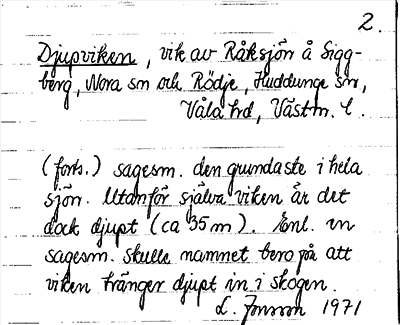 2.
Djupviken, vik av Råksjön å Sigg-
berg, Nora sn och Rödje, Huddunge sn,
Våla hd, Västm. l.
(forts.) sagesm. den grundaste i hela
sjön. Utanför själva viken är det
dock djupt (ca 35 m). Enl. en
sagesm. skulle namnet bero på att
viken tränger djupt in i skogen.
L. Jonsson 1971